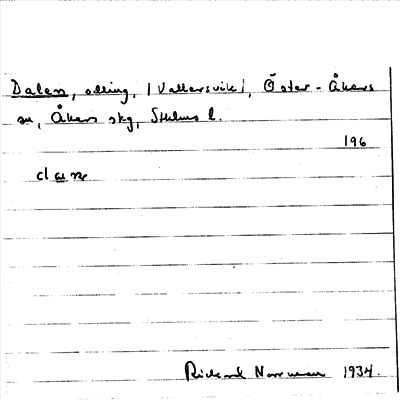 Dalen, odling, (Vallersvik), Öster-Åkers
sn, Åkers skg, Sthlms l.
196
dalen
Richard Norrman 1934.